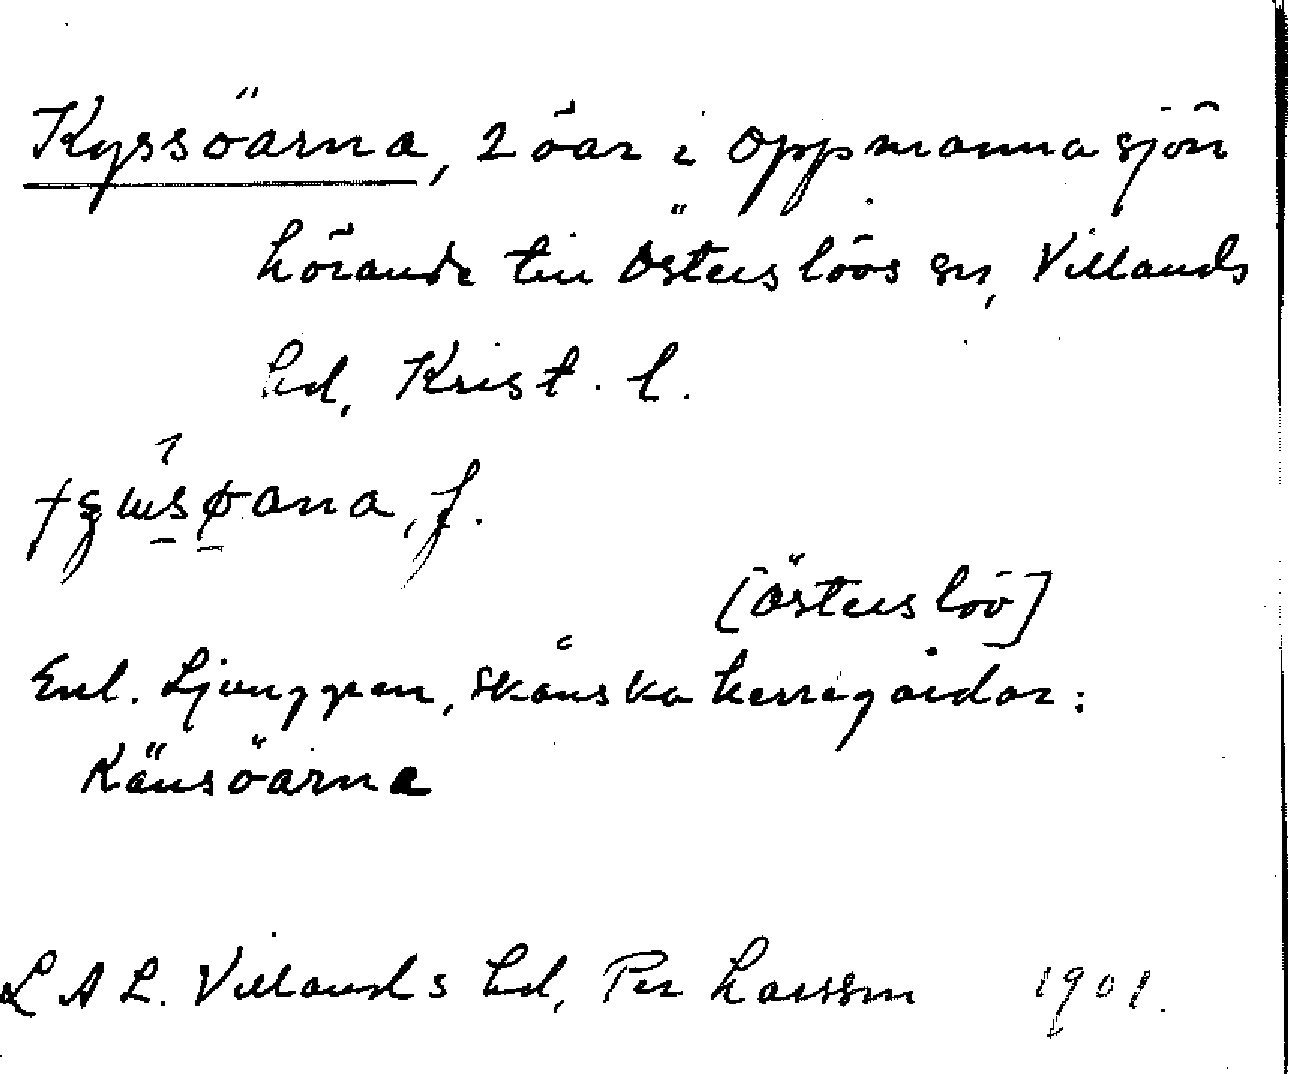 Kyssöarna, 2 öar i Oppmannasjön
hörande till Österslövs sn, Villands
hd, Krist. l.
[Österslöv]
Enl. Ljunggren, Skånska herregårdar:
Känsöarna
L A L. Villands hd, Per Larsson 1901.